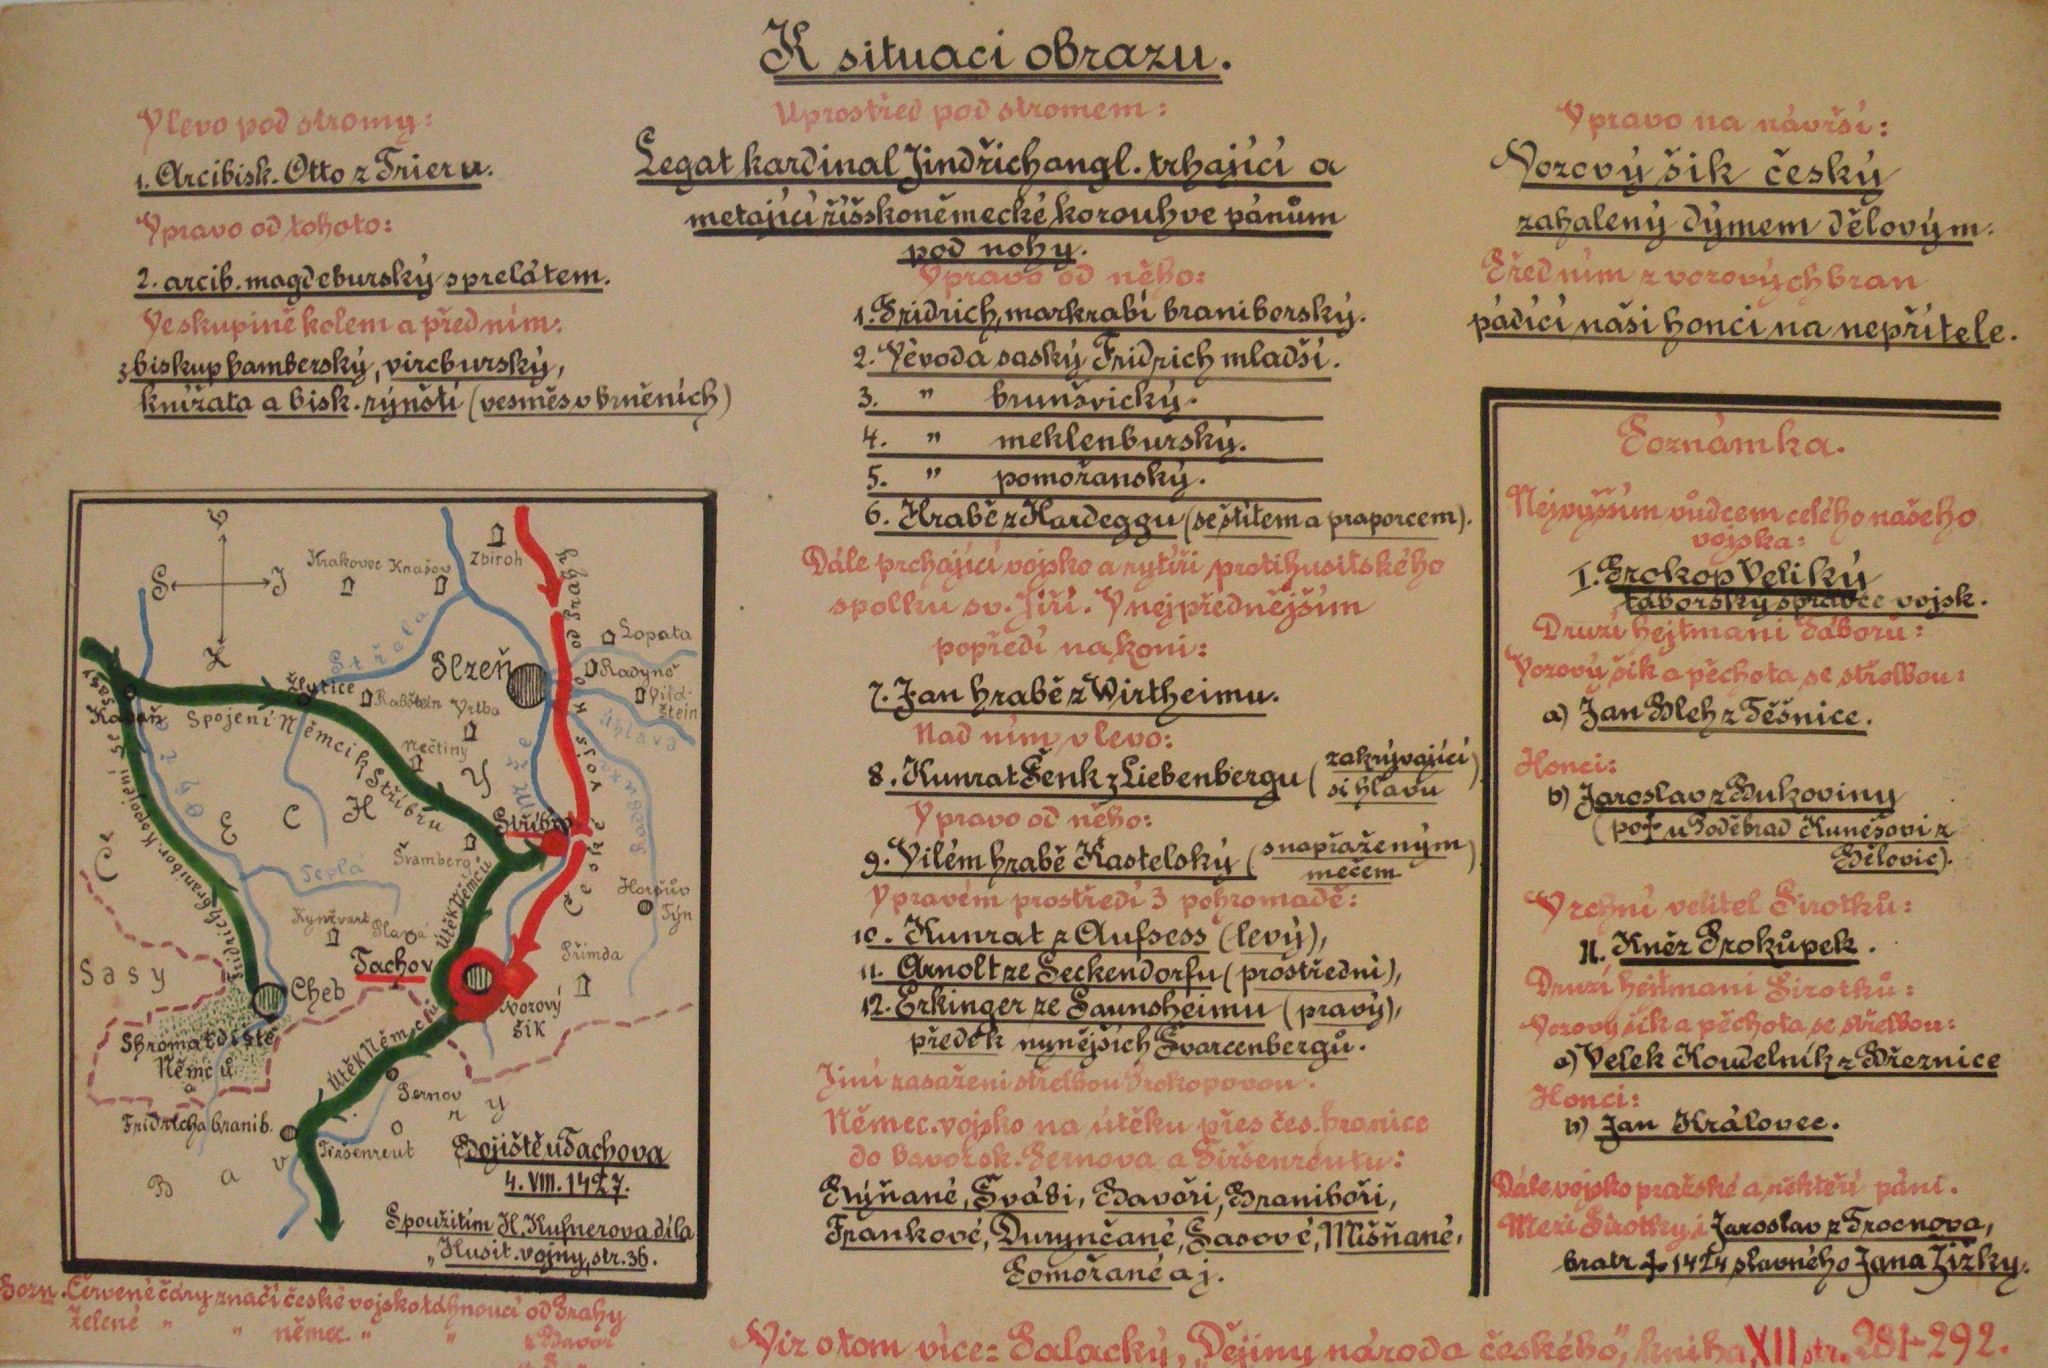 K situaci obrazu.
Vlevo pod stromy:
1. Arcibisk. Otto z Trieru.
Vpravo od tohoto:
2. arcib. magdeburský s prelátem.
Ve skupině kolem a před ním:
3 biskup bamberský, vircburský,
knížata a bisk. rýnští (vesměs v brněních)
Uprostřed pod stromem:
Legat kardinal Jindřich angl. trhající a
metající říšskoněmecké korouhve pánům
pod nohy.
Vpravo od něho:
1. Fridrich, markrabí braniborský.
2. Vévoda saský Fridrich mladší.
3. " brunšvický.
4. " meklenburský.
5. " pomořanský.
6. Hrabě z Hardeggu (se štítem a praporcem).
Dále prchající vojsko a rytíři protihusitského
spolku sv. Jiří. V nejpřednějším
popředí na koni:
7. Jan hrabě z Wirtheimu.
Nad ním vlevo:
8. Kunrat Šenk z Liebenbergu (zakrývající
si hlavu)
Vpravo od něho:
9. Vilém hrabě Kastelský (s napřaženým
mečem)
V pravém prostředí 3 pohromadě:
10. Kunrat z Aufsess (levý),
11. Arnolt ze Seckendorfu (prostřední),
12. Erkinger ze Saunsheimu (pravý),
předek nynějších Švarcenbergů.
Jiní zasaženi střelbou Prokopovou.
Němec. vojsko na útěku přes čes. hranice
do bavorsk. Pernova a Tiršenreutu:
Rýňané, Švábi, Bavoři, Braniboři,
Frankové, Durynčané, Sasové, Míšňané,
Pomořané a j.
Vpravo na návrší:
Vozový šik český
zahalený dýmem dělovým.
Před ním z vozových bran
pádící naši honci na nepřítele.
Poznámka.
Nejvyšším vůdcem celého našeho
vojska:
I. Prokop Veliký
táborský správce vojsk.
Druzí hejtmani Táborů:
Vozový šik a pěchota se střelbou:
a) Jan Bleh z Těšnice.
Honci:
b) Jaroslav z Bukoviny
(pot u Poděbrad Kunešovi z
Bělovic).
Vrchní velitel Sirotků:
II. Kněz Prokůpek.
Druzí hejtmani Sirotků:
Vozový šik a pěchota se střelbou:
a) Velek Koudelník z Březnice
Honci:
b) Jan Královec.
Dále vojsko pražské a někteří páni.
Mezi Sirotky i Jaroslav z Trocnova,
bratr † 1424 slavného Jana Žižky.
V
S J
Z
Krakovec Krašov
Zbiroh
České vojsko od Prahy
Lopata
Radyně
Vild-
štein
Střela
Plzeň
Žlutice
Rabštein Vrtba
Kadaň
Spojení Němci k Stříbru
Nečtiny
Úhlava
Mže
Radbuza
Ohře
Č E C H Y
Stříbro
Švamberg
Teplá
Fridrich branibor. K spojení se Sasy
Kynžvart
Planá
Útěk Němců
Horšův
Týn
Tachov
Přimda
Sasy
Cheb
Vozový
šik
Shromaždiště
Němců
Fridricha branib.
Útěk Němců
Pernov
Tiršenreut
B a v o r y
Bojiště u Tachova
4. VIII. 1427.
S použitím H. Kufnerova díla
„Husit. vojny, str. 36.
Pozn. Červené čáry značí české vojsko táhnoucí od Prahy
Zelené " " němec. " " z Bavor
Viz o tom více: Palacký, „Dějiny národa českého", kniha XII str. 281-292.